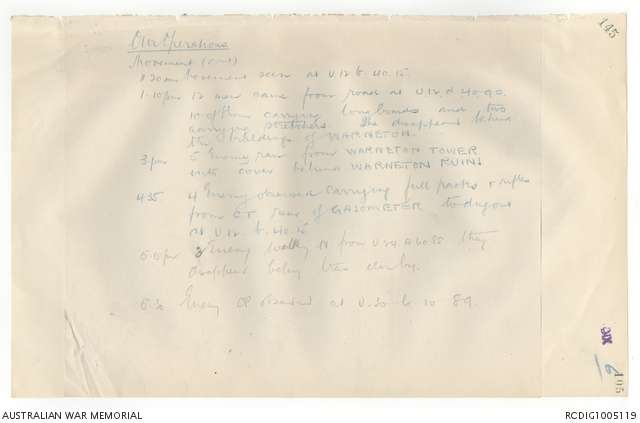 145
Our Operations
Movement (cont)
8.30am Movement seen at U.12.b.40.15.
1-10pm 12 men came from road at U.12.d.40.90.
10 of them carrying long boards and two
carrying stretchers. The disappeared behind
the buildings of WARNETON.
3.pm 5 Enemy ran from WARNETON TOWER
into cover behind WARNETON RUINS
4.35 4 Enemy observed carrying full packs & rifles
from C.T. rear of GASOMETER to dugout
at U.12.b.40.15
5.15pm 3 Enemy walking N from they
disappear behind trees close by.
5.30 Enemy OP observed at U.30.b.10.89.
105
AUSTRALIAN WAR MEMORIAL
RCDIG1005119